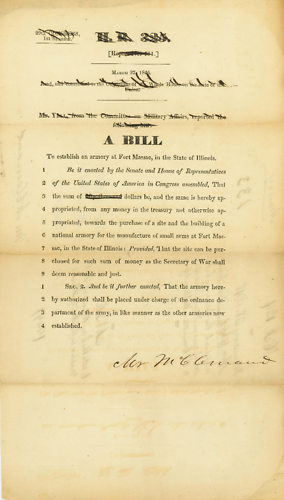 H. R. 391.
[Report No. 391.]
March 27, 1846.
Mr. That, from the Committee on Military Affairs, reported the
A BILL
To establish an armory at Fort Massac, in the State of Illinois.
1 Be it enacted by the Senate and House of Representatives
2 of the United States of America in Congress assembled, That
3 the sum of dollars be, and the same is hereby ap-
4 propriated, from any money in the treasury not otherwise ap-
5 propriated, towards the purchase of a site and the building of a
6 national armory for the manufacture of small arms at Fort Mas-
7 sac, in the State of Illinois: Provided, That the site can be pur-
8 chased for such sum of money as the Secretary of War shall
9 deem reasonable and just.
1 Sec. 2. And be it further enacted, That the armory here-
2 by authorized shall be placed under charge of the ordnance de-
3 partment of the army, in like manner as the other armories now
4 established.
Mr McClernand